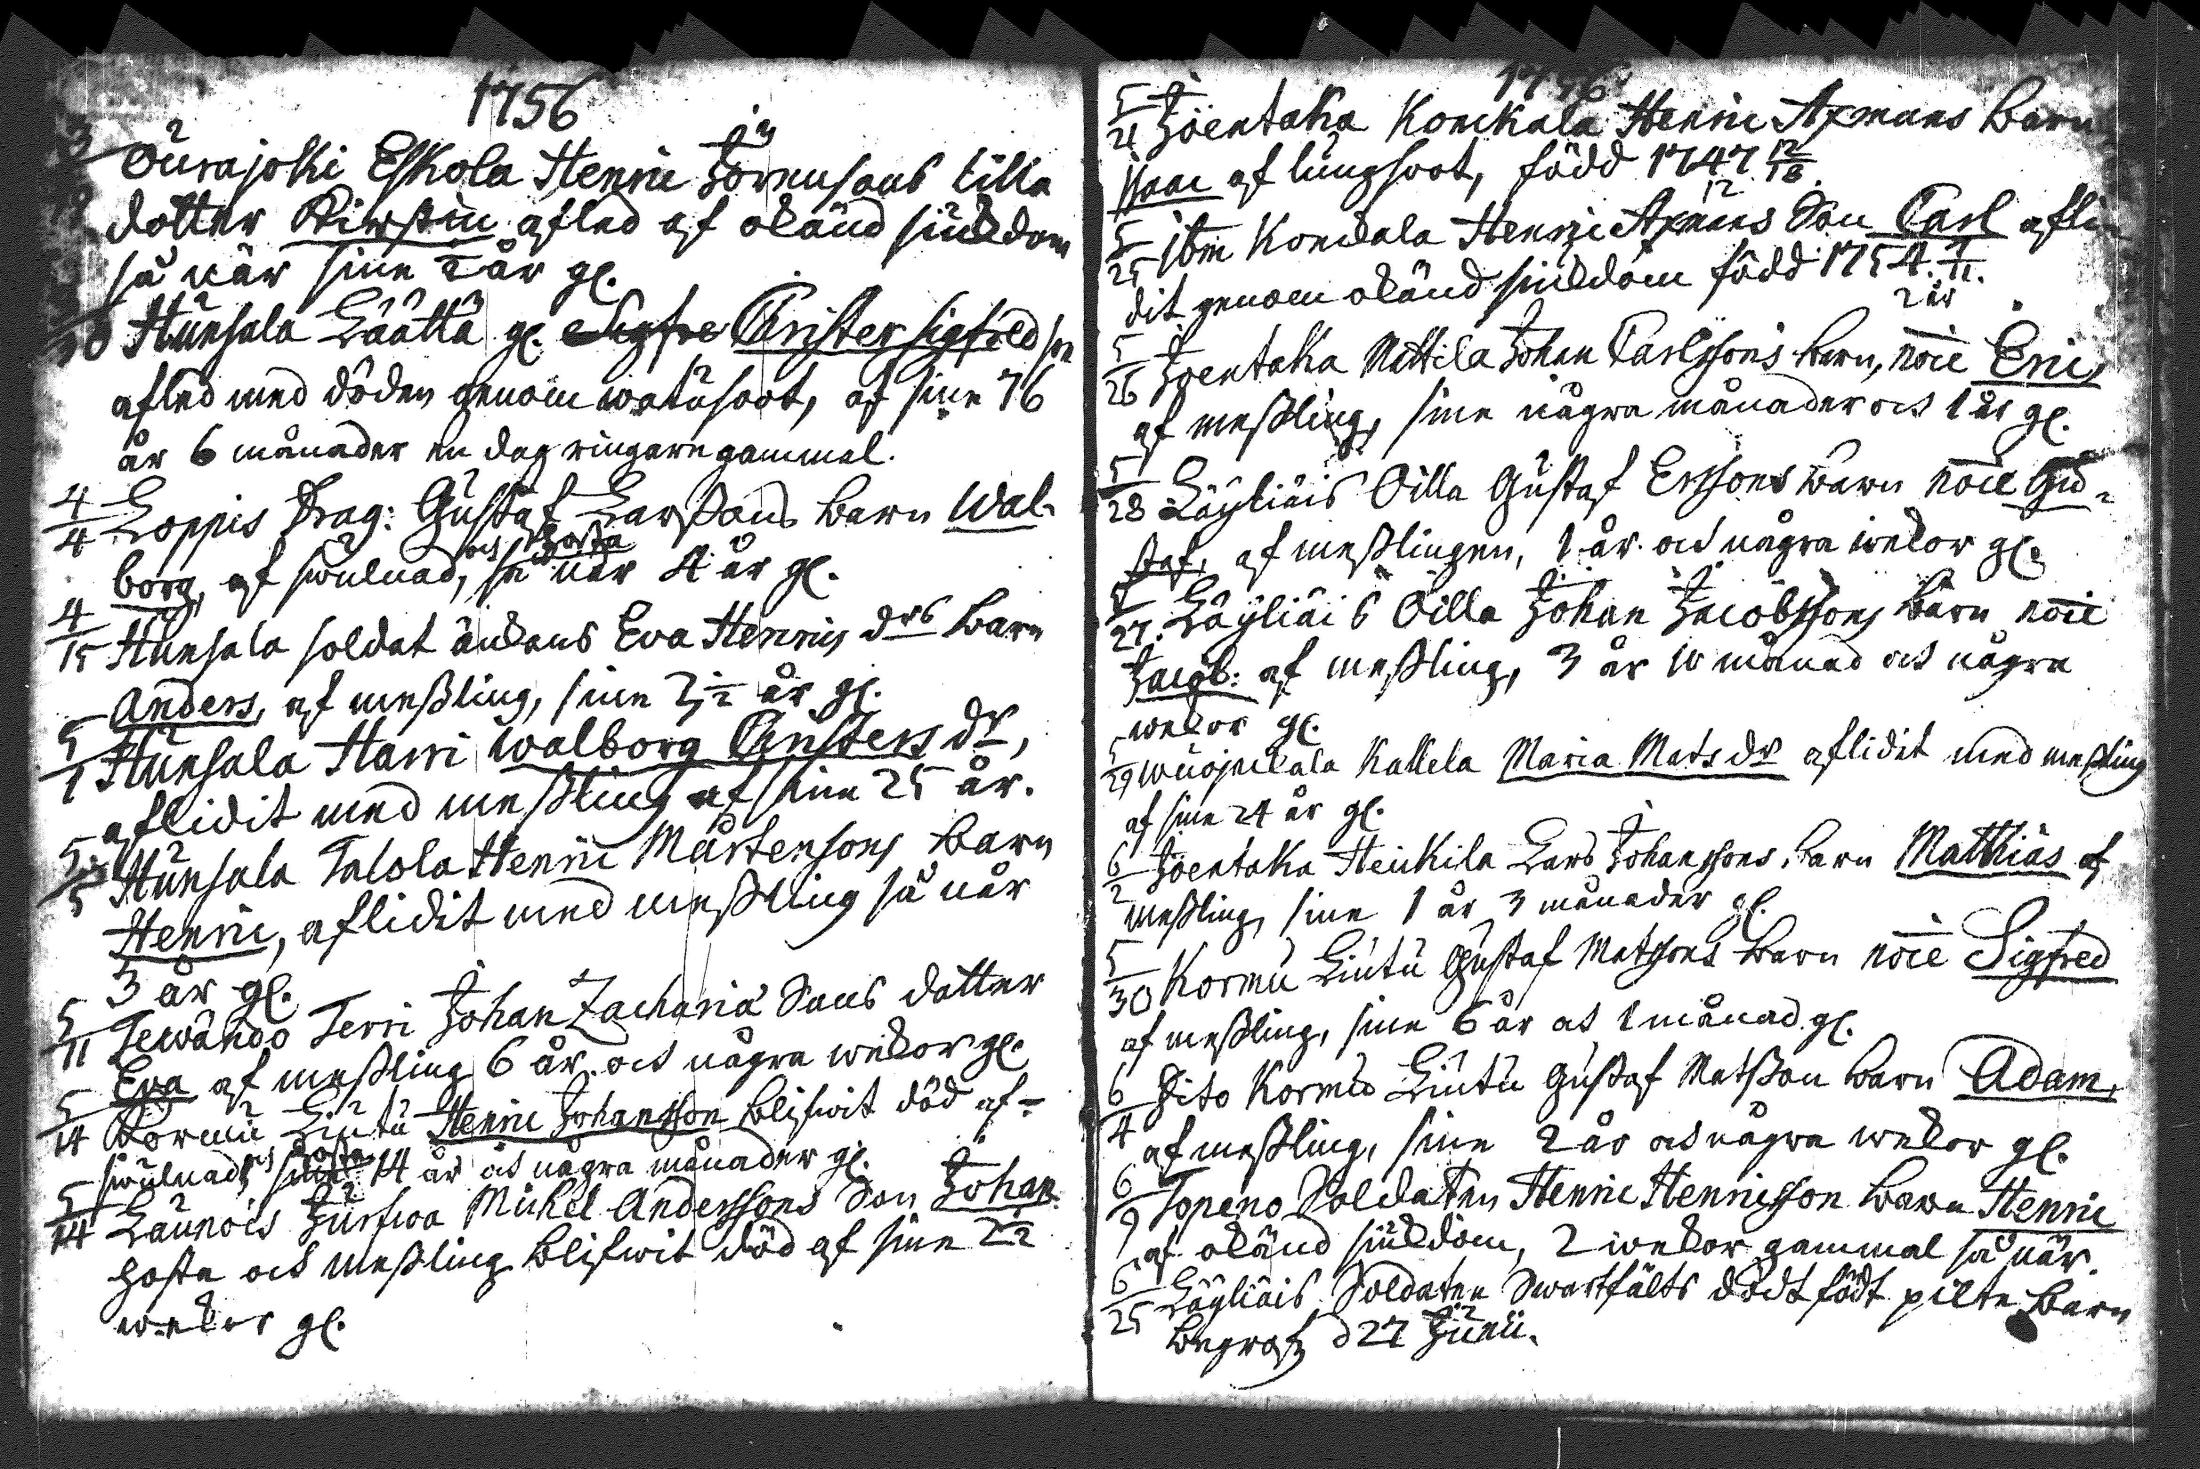 1756
3 Ourajoki Eskola Henric Jörensons lilla
dotter Kirstin afled af okänd siukdom
så när sine 2 år gl.
Hunsala Läättä gl. Christer Sigfred son
afled med döden genom watusoot, af sine 76
år 6 månader en dag ringare gammal.
4/4 Loppis Drag: Gustaf Larssons barn Wal-
och hosta
borg, af swulnad, så när 4 år gl.
4/15 Hunsala soldat änkans Eva Henrics drs barn
Anders, af messling, sine 2 1/2 år gl.
5/1 Hunsala Harri Walborg Christers dr,
aflidit med messling af sine 25 år.
5/5 Hunsala Talola Henric Mårtensons barn
Henric, aflidit med messling så när
3 år gl.
5/11 Tewändö Terri Johan Zachariæ Sons dotter
Eva af messling 6 år och några wekor gl.
5/14 Kormu Liutu Henric Johansson blifwit död af
och hosta
swulnad, 14 år och några månader gl.
5/14 Launois Jusswa Michel Anderssons Son Johan
hosta och messling blifwit död af sine 2 1/2
wekor gl.
1756
5/21 Joentaka Konckala Henric Axmans barn
Isaac af lungsoot, född 1747 12/18.
5/25 ibm Konckala Henric Axmans Son Carl afli-
dit genom okänd siukdom född 1754. 7/11.
2 år
5/26 Joentaka Mattila Johan Carlssons barn, noie Eric,
af messling, sine några månader och 1 år gl.
5/28 Läyliäis Oilla Gustaf Erssons barn noie Gu-
staf, af messlingen, 1 år och några wekor gl.
5/27. Läyliäis Oilla Johan Jacobssons barn noie
Jacob: af messling, 3 år 10 månad och några
wekor gl.
5/29 Wuojuckala Kallela Maria Mats dr aflidit med messling
af sine 24 år gl.
6/2 Joentaka Heickilä Lars Johanssons barn Matthias af
messling, sine 1 år 3 månader gl.
5/30 Kormu Liutu Gustaf Matssons barn noie Sigfred
af messling, sine 6 år och 1 månad gl.
6/4 Dito Kormu Liutu Gustaf Matsson barn Adam,
af messling, sine 2 år och några wekor gl.
6/9 Topeno Soldaten Henric Henricsson barn Henric
af okänd siukdom, 2 wekor gammal så när.
6/25 Läyliäis Soldaten Swartfälts dödt födt pilte barn
begrafz d 27 Junii.